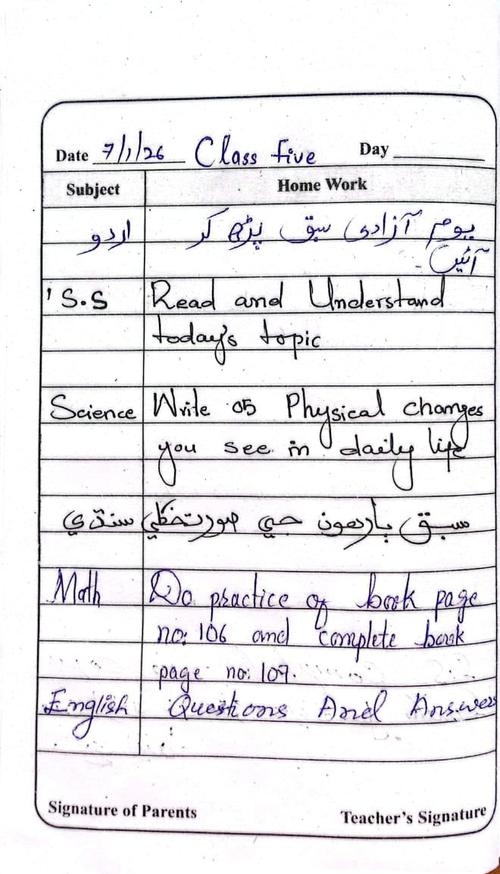 Date 7/1/26 Class five Day
Subject Home Work
اردو یوم آزادی سبق پڑھ کر
آئیں۔
S.S Read and Understand
today's topic
Science Write 05 Physical changes
you see in daily life
سنڌي سبق يارهون جي صورتخطي
Math Do practice of book page
no: 106 and complete book
page no: 107.
English Questions And Answers
Signature of Parents Teacher's Signature